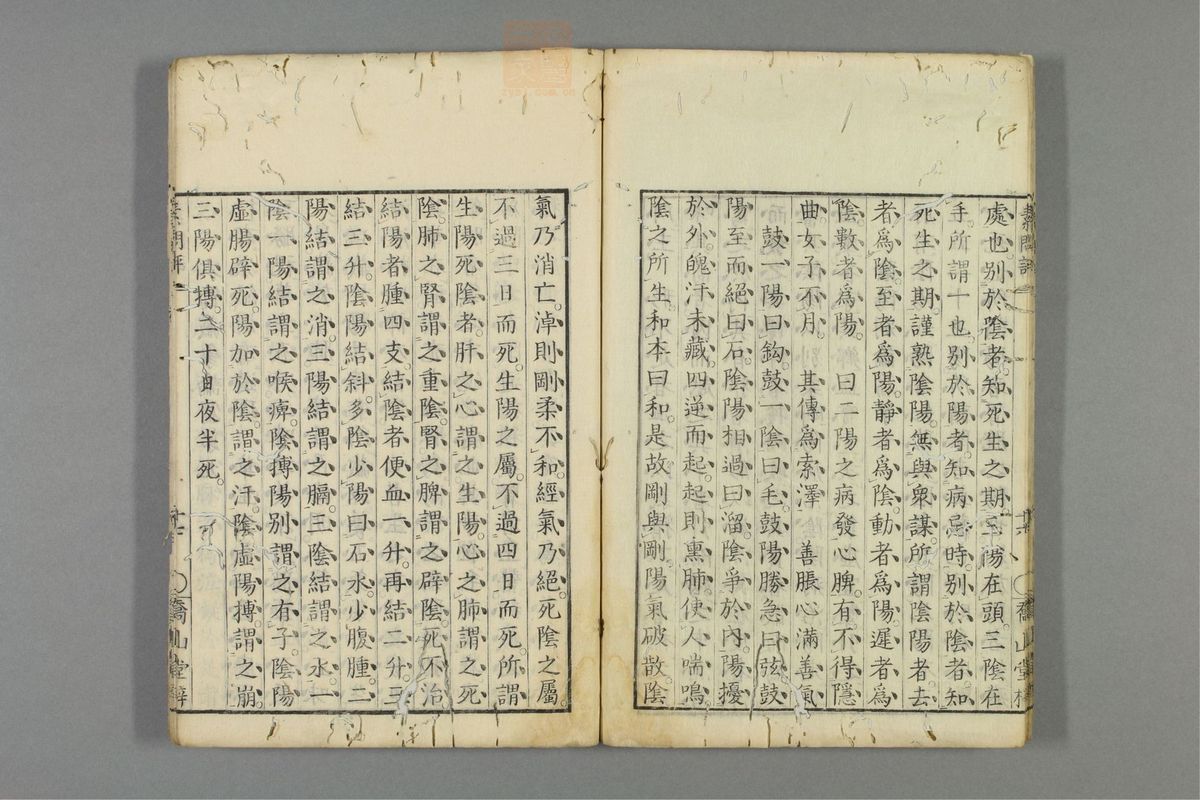 處也別於陰者知死生之期三陽在頭三陰在
手所謂一也別於陽者知病忌時別於陰者知
死生之期謹熟陰陽無與衆謀所謂陰陽者去
者爲陰至者爲陽靜者爲陰動者爲陽遲者爲
陰數者爲陽 曰二陽之病發心脾有不得隱
曲女子不月 其傳爲索澤 善脹心滿善氣
鼓一陽曰鈎鼓一陰曰毛鼓陽勝急曰弦鼓
陽至而絕曰石陰陽相過曰溜陰爭於內陽擾
於外魄汗未藏四逆而起起則熏肺使人喘鳴
陰之所生和本曰和是故剛與剛陽氣破散陰
氣乃消亡淖則剛柔不和經氣乃絕死陰之屬
不過三日而死生陽之屬不過四日而死所謂
生陽死陰者肝之心謂之生陽心之肺謂之死
陰肺之腎謂之重陰腎之脾謂之辟陰死不治
結陽者腫四支結陰者便血一升再結二升三
結三升陰陽結斜多陰少陽曰石水少腹腫二
陽結謂之消三陽結謂之膈三陰結謂之水一
陰一陽結謂之喉痹陰搏陽別謂之有子陰陽
虛腸辟死陽加於陰謂之汗陰虛陽搏謂之崩
三陽俱搏二十日夜半死